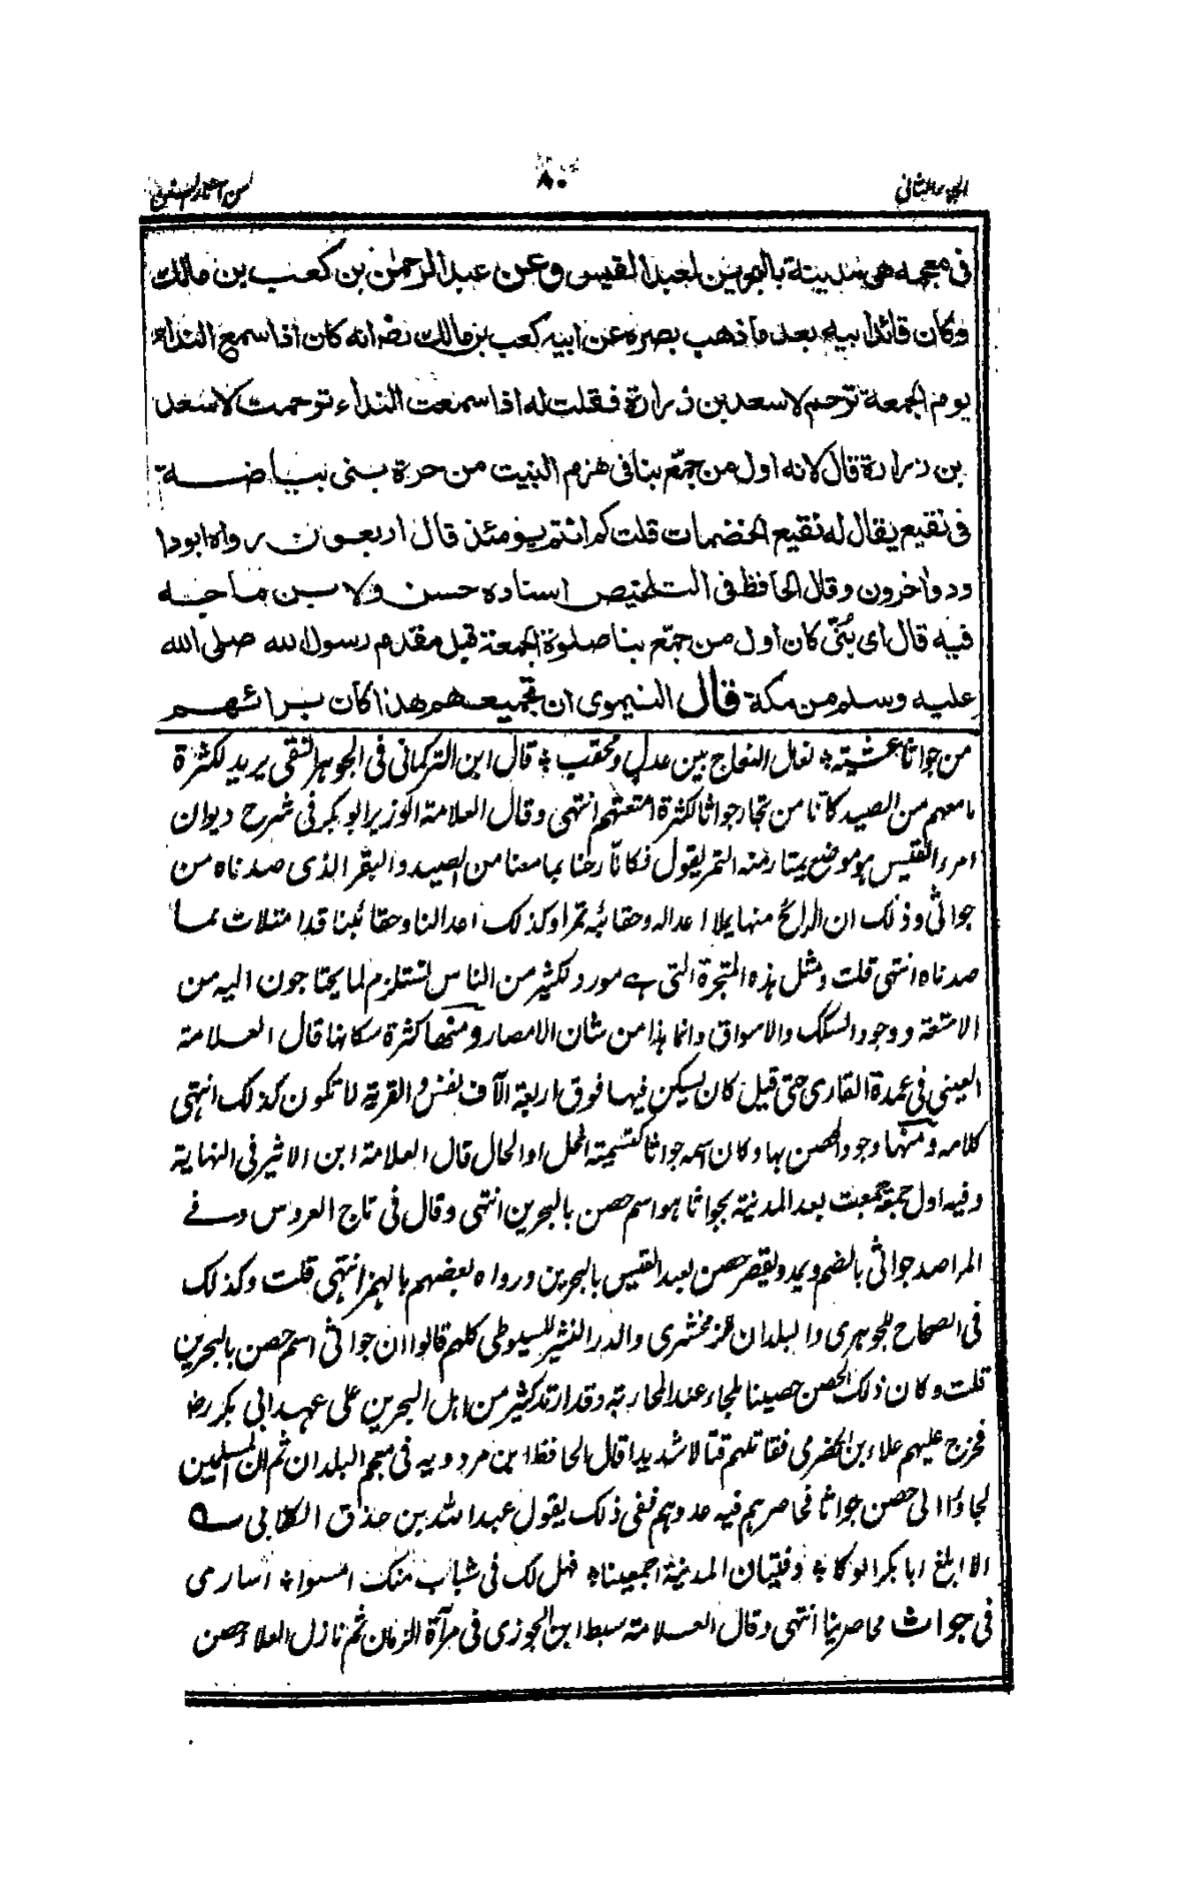 الجزء الثانى
٨٠
من آثار السنن
فى معجمه هى مدينة بالبحرين لعبد القيس وعن عبد الرحمٰن بن كعب بن مالك
وكان قائد ابيه بعد ما ذهب بصره عن ابيه كعب بن مالك رضـ انه كان اذا سمع النداء
يوم الجمعة ترحم لاسعد بن زرارة فقلت له اذا سمعت النداء ترحمت لاسعد
بن زرارة قال لانه اول من جمّع بنا فى هزم النبيت من حرة بنى بياضــة
فى نقيع يقال له نقيع الخضمات قلت كم انتم يومئذ قال اربعون رواه ابودا
ود واخرون وقال الحافظ فى التلخيص اسناده حسن ولابن ماجه
فيه قال اى بُنىّ كان اول من جمّع بنا صلوة الجمعة قبل مقدم رسول الله صلى الله
عليه وسلم من مكة قال النيموى ان تجميعهم هذا كان برائهم
من جواثا عشية * نعال النعاج بين عدل ومحقب * قال ابن التركمانى فى الجوهر النقى يريد لكثرة
ما معهم من الصيد كانا من تجار جواثا لكثرة امتعتهم انتهى وقال العلامة الوزير ابو بكر فى شرح ديوان
امرء القيس هو موضع يمتار منه التمر يقول فكانّا رحنا بما معنا من الصيد والبقر الذى صدناه من
جواثى وذلك ان الرائح منها يملا اعداله وحقائبه تمرا وكذلك اعدالنا وحقائبنا قد امتلات مما
صدناه انتهى قلت ومثل هذه المتجرة التى هى مورد لكثير من الناس تستلزم لما يحتاجون اليه من
الامتعة ووجود السكك والاسواق وانما هذا من شان الامصار ومنها كثرة سكانها قال العلامة
العينى فى عمدة القارى حتى قيل كان يسكن فيها فوق اربعة الآف نفس والقرية لا تكون كذلك انتهى
كلامه ومنها وجود الحصن بها وكان اسمه جواثا كتسمية المحل او الحال قال العلامة ابن الاثير فى النهاية
وفيه اول جمعة جمعت بعد المدينة بجواثا هو اسم حصن بالبحرين انتهى وقال فى تاج العروس وفى
المراصد جواثى بالضم ويمد ويقصر حصن لعبد القيس بالبحرين ورواه بعضهم بالهمز انتهى قلت وكذلك
فى الصحاح للجوهرى والبلدان للزمخشرى والدر النثير للسيوطى كلهم قالوا ان جواثى اسم حصن بالبحرين
قلت وكان ذلك الحصن حصينا يلجاء عند المحاربة وقد ارتد كثير من اهل البحرين على عهد ابى بكر رضـ
فخرج عليهم علاء بن الحضرمى فقاتلهم قتالا شديدا قال الحافظ ابن مردويه فى معجم البلدان ثم ان المسلمين
لجاؤا الى حصن جواثا فحاصرهم فيه عدوهم ففى ذلك يقول عبد الله بن حذق الكلابى
الا ابلغ ابا بكر الوكا * وفتيان المدينة اجمعينا * فهل لك فى شباب منك امسوا * اسارى
فى جواث محاصرينا انتهى وقال العلامة سبط ابن الجوزى فى مرآة الزمان ثم نازل العلا حصن